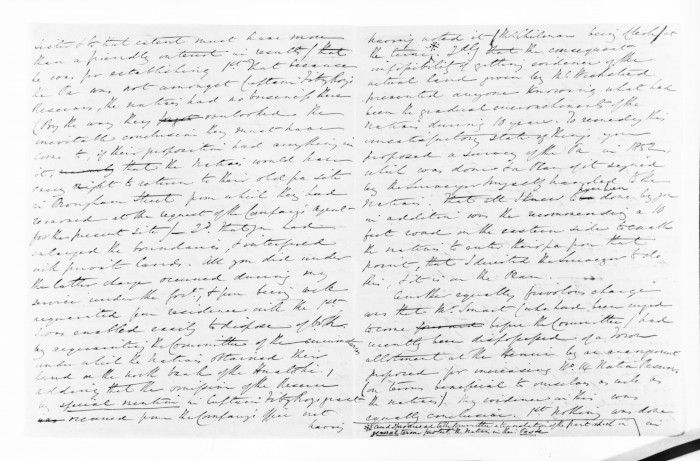 to that extent must have more
than a friendly interest in results / that
he was for establishing 1st That because
the Pa was not amongst Captain FitzRoy's
Reserves, the natives had no business there
(By the way they overlooked the
inevitable conclusion they must have
come to, if their proposition had anything in
it, that the Natives would have
every right to return to their old pa site
in Brougham Street from which they had
removed at the request of the Company's Agent
for the present site / 2d That you had
enlarged the boundaries, & interfered
with private lands. All you did under
the latter charge occurred during my
service under the Govt., & from being well
acquainted from residence with the
I was enabled easily to dispose of both
by acquainting the Committee of the
under which the Natives obtained their
land on the north bank of the Huatoki,
adding that the omission of the Reserve
by special mention in Captain FitzRoy's grant
occurred from the Company's Office not
having
having noted it (Mr. being Clerk) at
the time. * 2dly that the consequent
impossibility of getting evidence of the
actual land given by Mr Wicksteed
prevented anyone knowing what had
been the gradual encroachments of the
Natives during 10 years. To remedy this
unsatisfactory state of things you
proposed a survey of the Pa in 1852
which was done on Plan of it signed
by the Surveyor myself handed to the
Natives. That all I knew to be done by you
in addition was the recommending a 10
foot road on the eastern side to enable
the natives to enter their pa from that
point, that I directed the Surveyor to do
this, & it is on the Plan.
Another equally frivolous charge
was that Mr Smart (who had been urged
to come before the Committee) had
recently been dispossessed of a
allotment at the Henui by an arrangement
proposed for increasing the Native Reserves
(on terms beneficial to ourselves as well as
the natives). My evidence in this was
equally conclusive. 1st Nothing was done
in